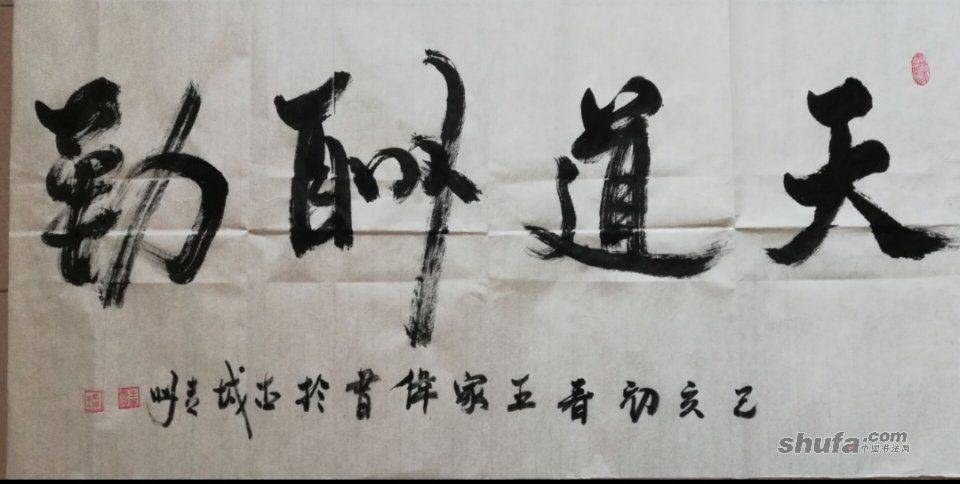 天道酬勤
己亥初春王家伟书於古城青州
shufa.com
中国书法网